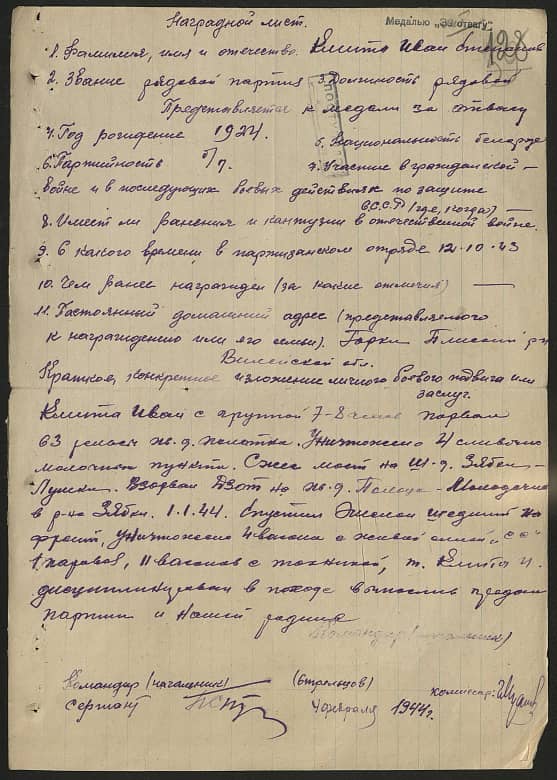 Наградной лист.
Медалью „За отвагу"
128
1. Фамилия, имя и отечество. Клита Иван Степанов
2. Звание рядовой партиз 3. Должность рядовой
Представляется к медали за отвагу
4. Год рождение 1924
5. Национальность белорус
6. Партийность б/п.
7. Участие в гражданской —
войне и в последующих боевых действиях по защите
СССР (где, когда) —
8. Имеет ли ранения и кантузии в отечественной войне.
9. С какого времени в партизанском отряде 12.10.43
10. Чем ранее награжден (за какие отличия) —
11. Постоянный домашний адрес (представляемого
к награждению или его семьи). Горки Плисский р-н
Вилейской обл.
Краткое, конкретное изложение личного боевого подвига или
заслуг.
Клита Иван с группой 7-8 порвал
63 рельсы ж.д. полотна. Уничтожено 4 сливочно
молочных пункта. Сжег мост на ш.д. Зябки-
Лужки. Взорвал ДЗОТ на ж.д. Полоцк-Молодечно
в р-не Зябки. 1.1.44. Спустил эшелон шедший на
фронт, уничтожено 4 вагона с живой силой „СС"
1 паровоз, 11 вагонов с техникой, т. Клита И.
дисциплинирован в походе вынослив предан
партии и нашей родине
Командир (начальник)
Командир (начальник) (Стрельцов)
комиссар:
сержант
4 февраля 1944 г.